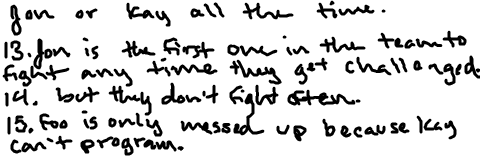 Jon or Kay all the time.
13. Jon is the first one in the team to
fight any time they get challenged.
14. but they don't fight often.
15. Foo is only messed up because Kay
can't program.